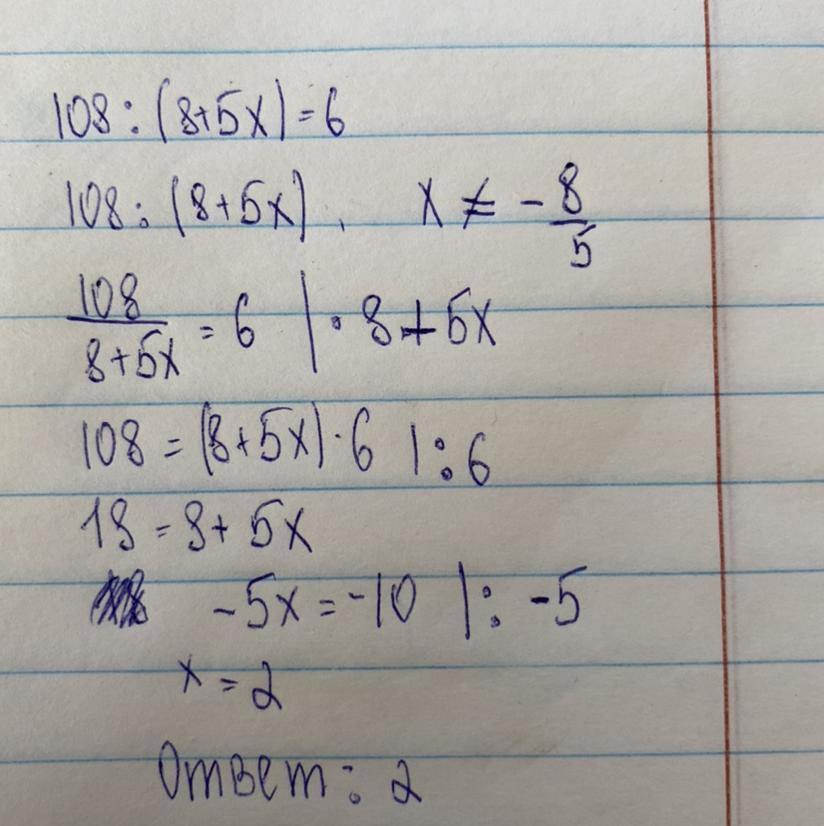 108 : (8+5x) = 6
108 : (8+5x), x ≠ -8/5
108/(8+5x) = 6 | · 8+5x
108 = (8+5x) · 6 | : 6
18 = 8+ 5x
-5x = -10 | : -5
x = 2
Ответ: 2